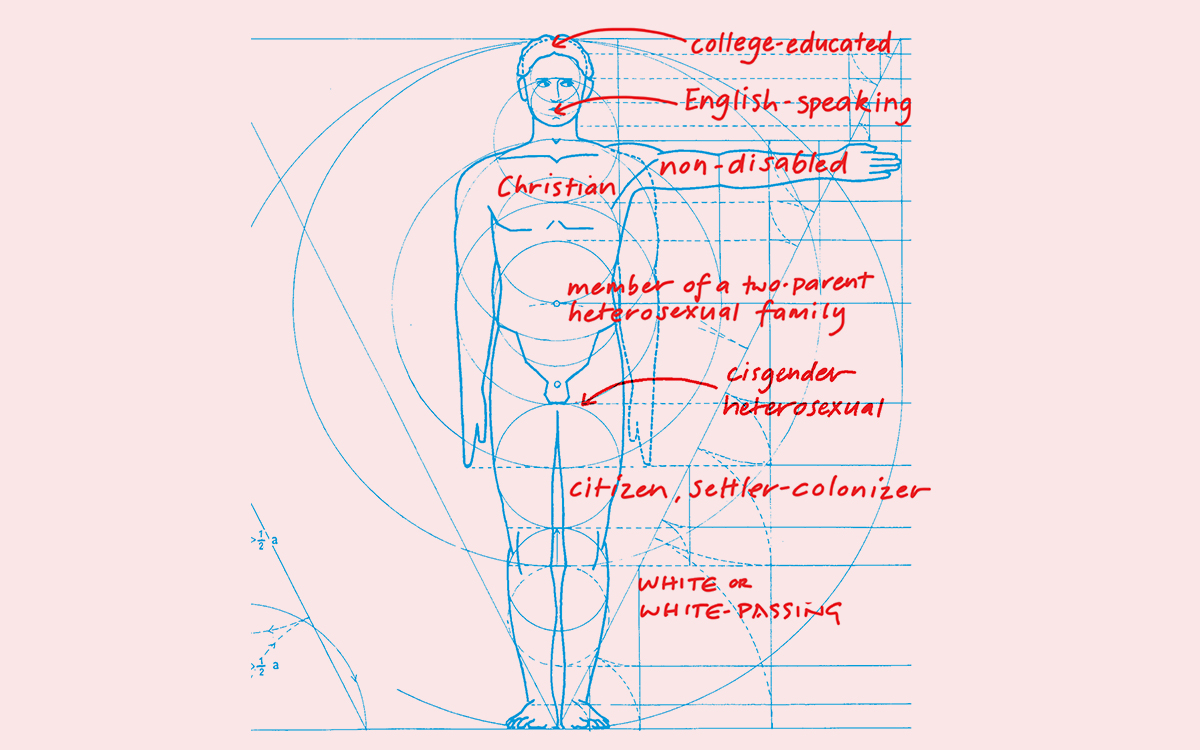 college-educated
English-speaking
non-disabled
Christian
member of a two-parent
heterosexual family
cisgender
heterosexual
citizen, settler-colonizer
WHITE OR
WHITE-PASSING
>½ a
>½ a